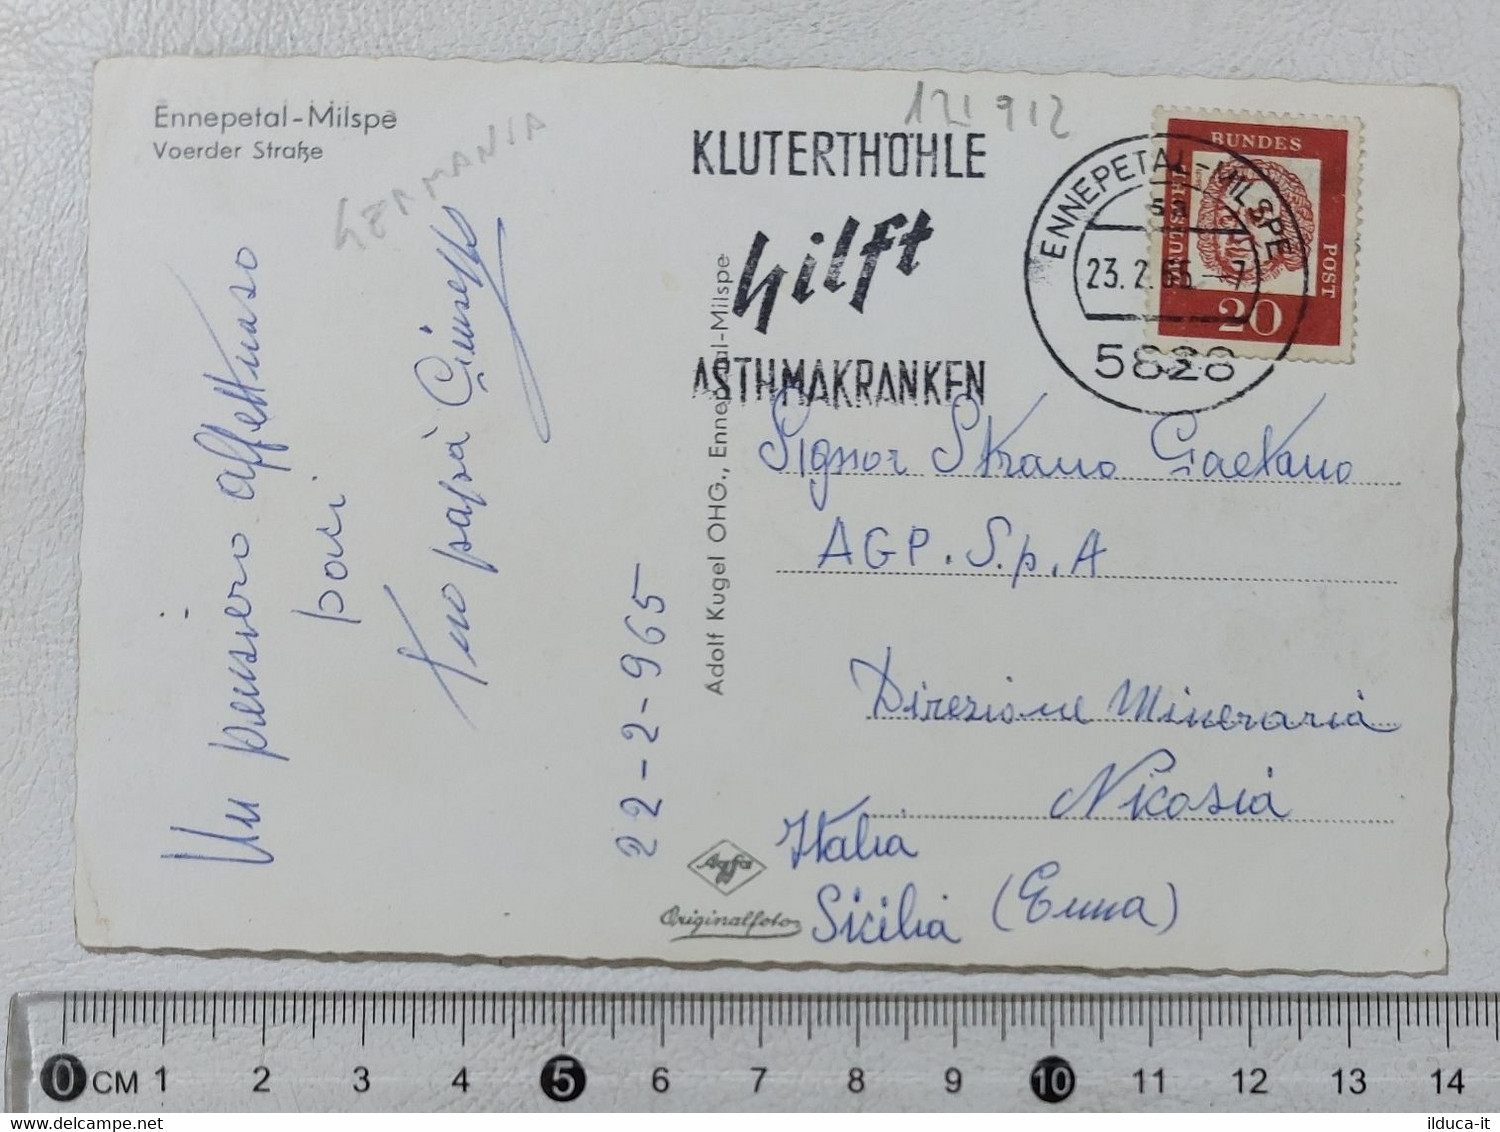 Ennepetal-Milspe
Voerder Straße
GERMANIA
Un pensiero affettuoso
baci
tuo papà Giuseppe
22-2-965
Adolf Kugel OHG., Ennepetal-Milspe
Agfa
Originalfoto
121912
KLUTERTHÖHLE
hilft
ASTHMAKRANKEN
ENNEPETAL-MILSPE
sa
23.2.65-7
5828
DEUTSCHE
BUNDES
POST
20
Signor Strano Gaetano
AGP. S.p.A
Direzione Mineraria
Nicosia
Italia
Sicilia (Enna)
0 CM 1 2 3 4 5 6 7 8 9 10 11 12 13 14
ilduca-it